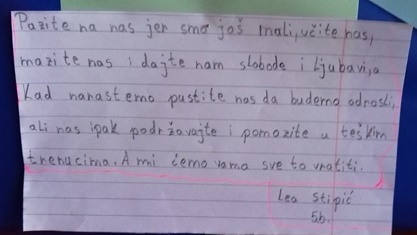 Pazite na nas jer smo još mali, učite nas,
mazite nas i dajte nam slobode i ljubavi, a
kad narastemo pustite nas da budemo odrasli,
ali nas ipak podržavajte i pomozite u teškim
trenucima. A mi ćemo vama sve to vratiti.
Lea Stipić
5b.